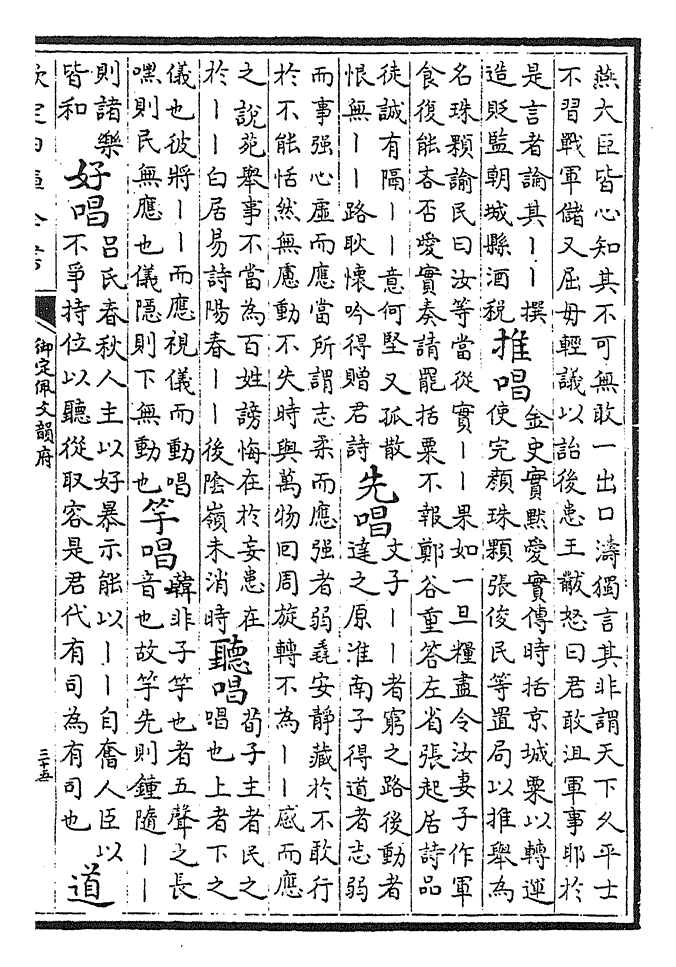 燕大臣皆心知其不可無敢一出口濤獨言其非謂天下久平士
不習戰軍儲又屈毋輕議以詒後患王黻怒曰君敢沮軍事耶於
是言者論其丨丨撰
造貶監朝城縣酒稅
推唱
金史實㸃愛實傳時括京城粟以轉運
使完顏珠顆張俊民等置局以推舉為
名珠顆諭民曰汝等當從實丨丨果如一旦糧盡令汝妻子作軍
食復能吝否愛實奏請罷括粟不報鄭谷重答左省張起居詩品
徒誠有隔丨丨意何堅又孤散
恨無丨丨路耿懷吟得贈君詩
先唱
文子丨丨者窮之路後動者
達之原淮南子得道者志弱
而事强心虛而應當所謂志柔而應强者弱毳安靜藏於不敢行
於不能恬然無慮動不失時與萬物回周旋轉不為丨丨感而應
之 說苑舉事不當為百姓謗悔在於妄患在
於丨丨白居易詩陽春丨丨後陰嶺未消時
聽唱
荀子主者民之
唱也上者下之
儀也彼將丨丨而應視儀而動唱
嘿則民無應也儀隱則下無動也
竽唱
韓非子竽也者五聲之長
音也故竽先則鐘隨丨丨
則諸樂
皆和
好唱
呂氏春秋人主以好暴示能以丨丨自奮人臣以
不爭持位以聽從取容是君代有司為有司也
道
御定佩文韻府
三十五